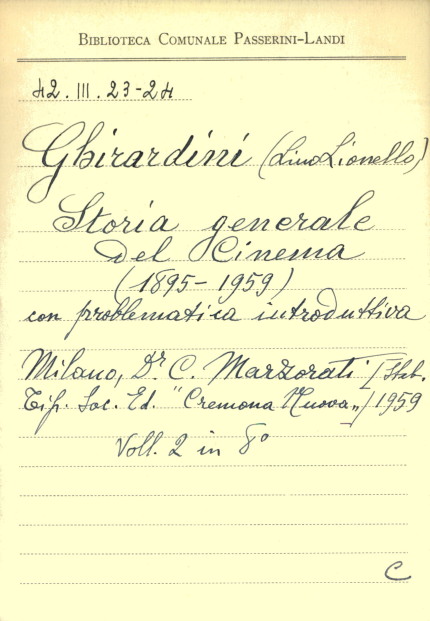 BIBLIOTECA COMUNALE PASSERINI-LANDI
42.III.23-24
Ghirardini (Lino Lionello)
Storia generale
del Cinema
(1895-1959)
con problematica introduttiva
Milano, Dr C. Marzorati [Stab.
Tip. Soc. Ed. "Cremona Nuova„] 1959
Voll. 2 in 8°
C